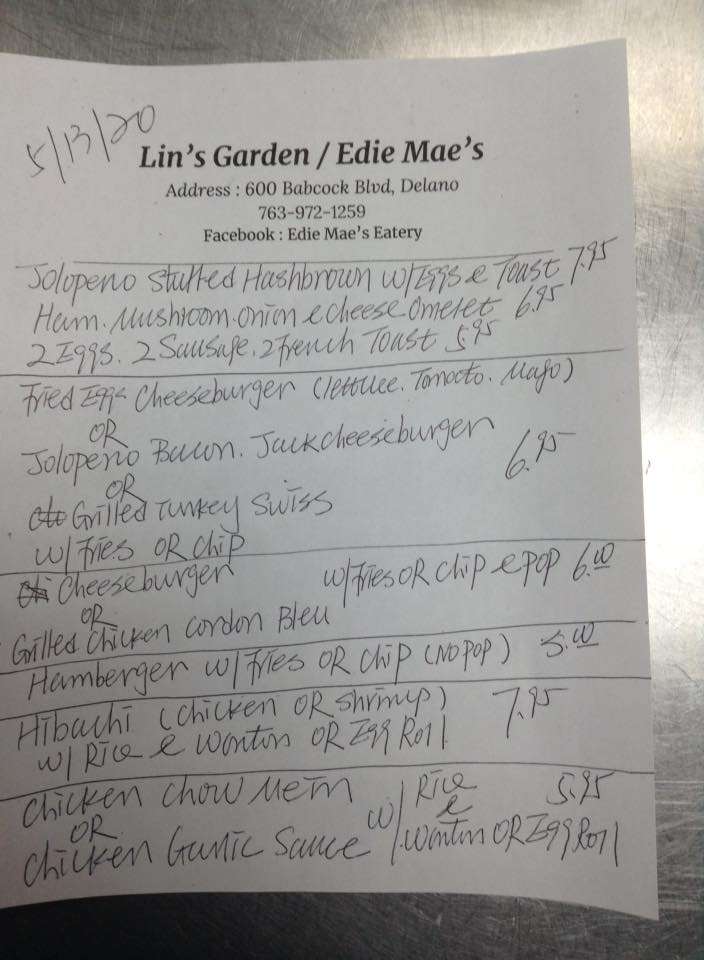 5/13/20
Lin's Garden / Edie Mae's
Address : 600 Babcock Blvd, Delano
763-972-1259
Facebook : Edie Mae's Eatery
Jolopeno Stuffed Hashbrown w/ Eggs & Toast 7.95
Ham. Mushroom. Onion & cheese Omelet 6.95
2 Eggs. 2 Sausage. 2 French Toast 5.95
Fried Eggs Cheeseburger (lettuce. Tomoto. Mayo)
OR
Jolopeno Bacon. Jack cheeseburger 6.95
OR
Grilled Turkey Swiss
w/ Fries OR Chip
Cheeseburger w/ Fries OR Chip & POP 6.00
OR
Grilled Chicken Cordon Bleu
Hamberger w/ Fries OR Chip (NO POP) 5.00
Hibachi (Chicken OR Shrimp) 7.95
w/ Rice & Wonton OR Egg Roll
Chicken Chow Mein w/ Rice 5.95
OR &
Chicken Garlic Sauce Wonton OR Egg Roll